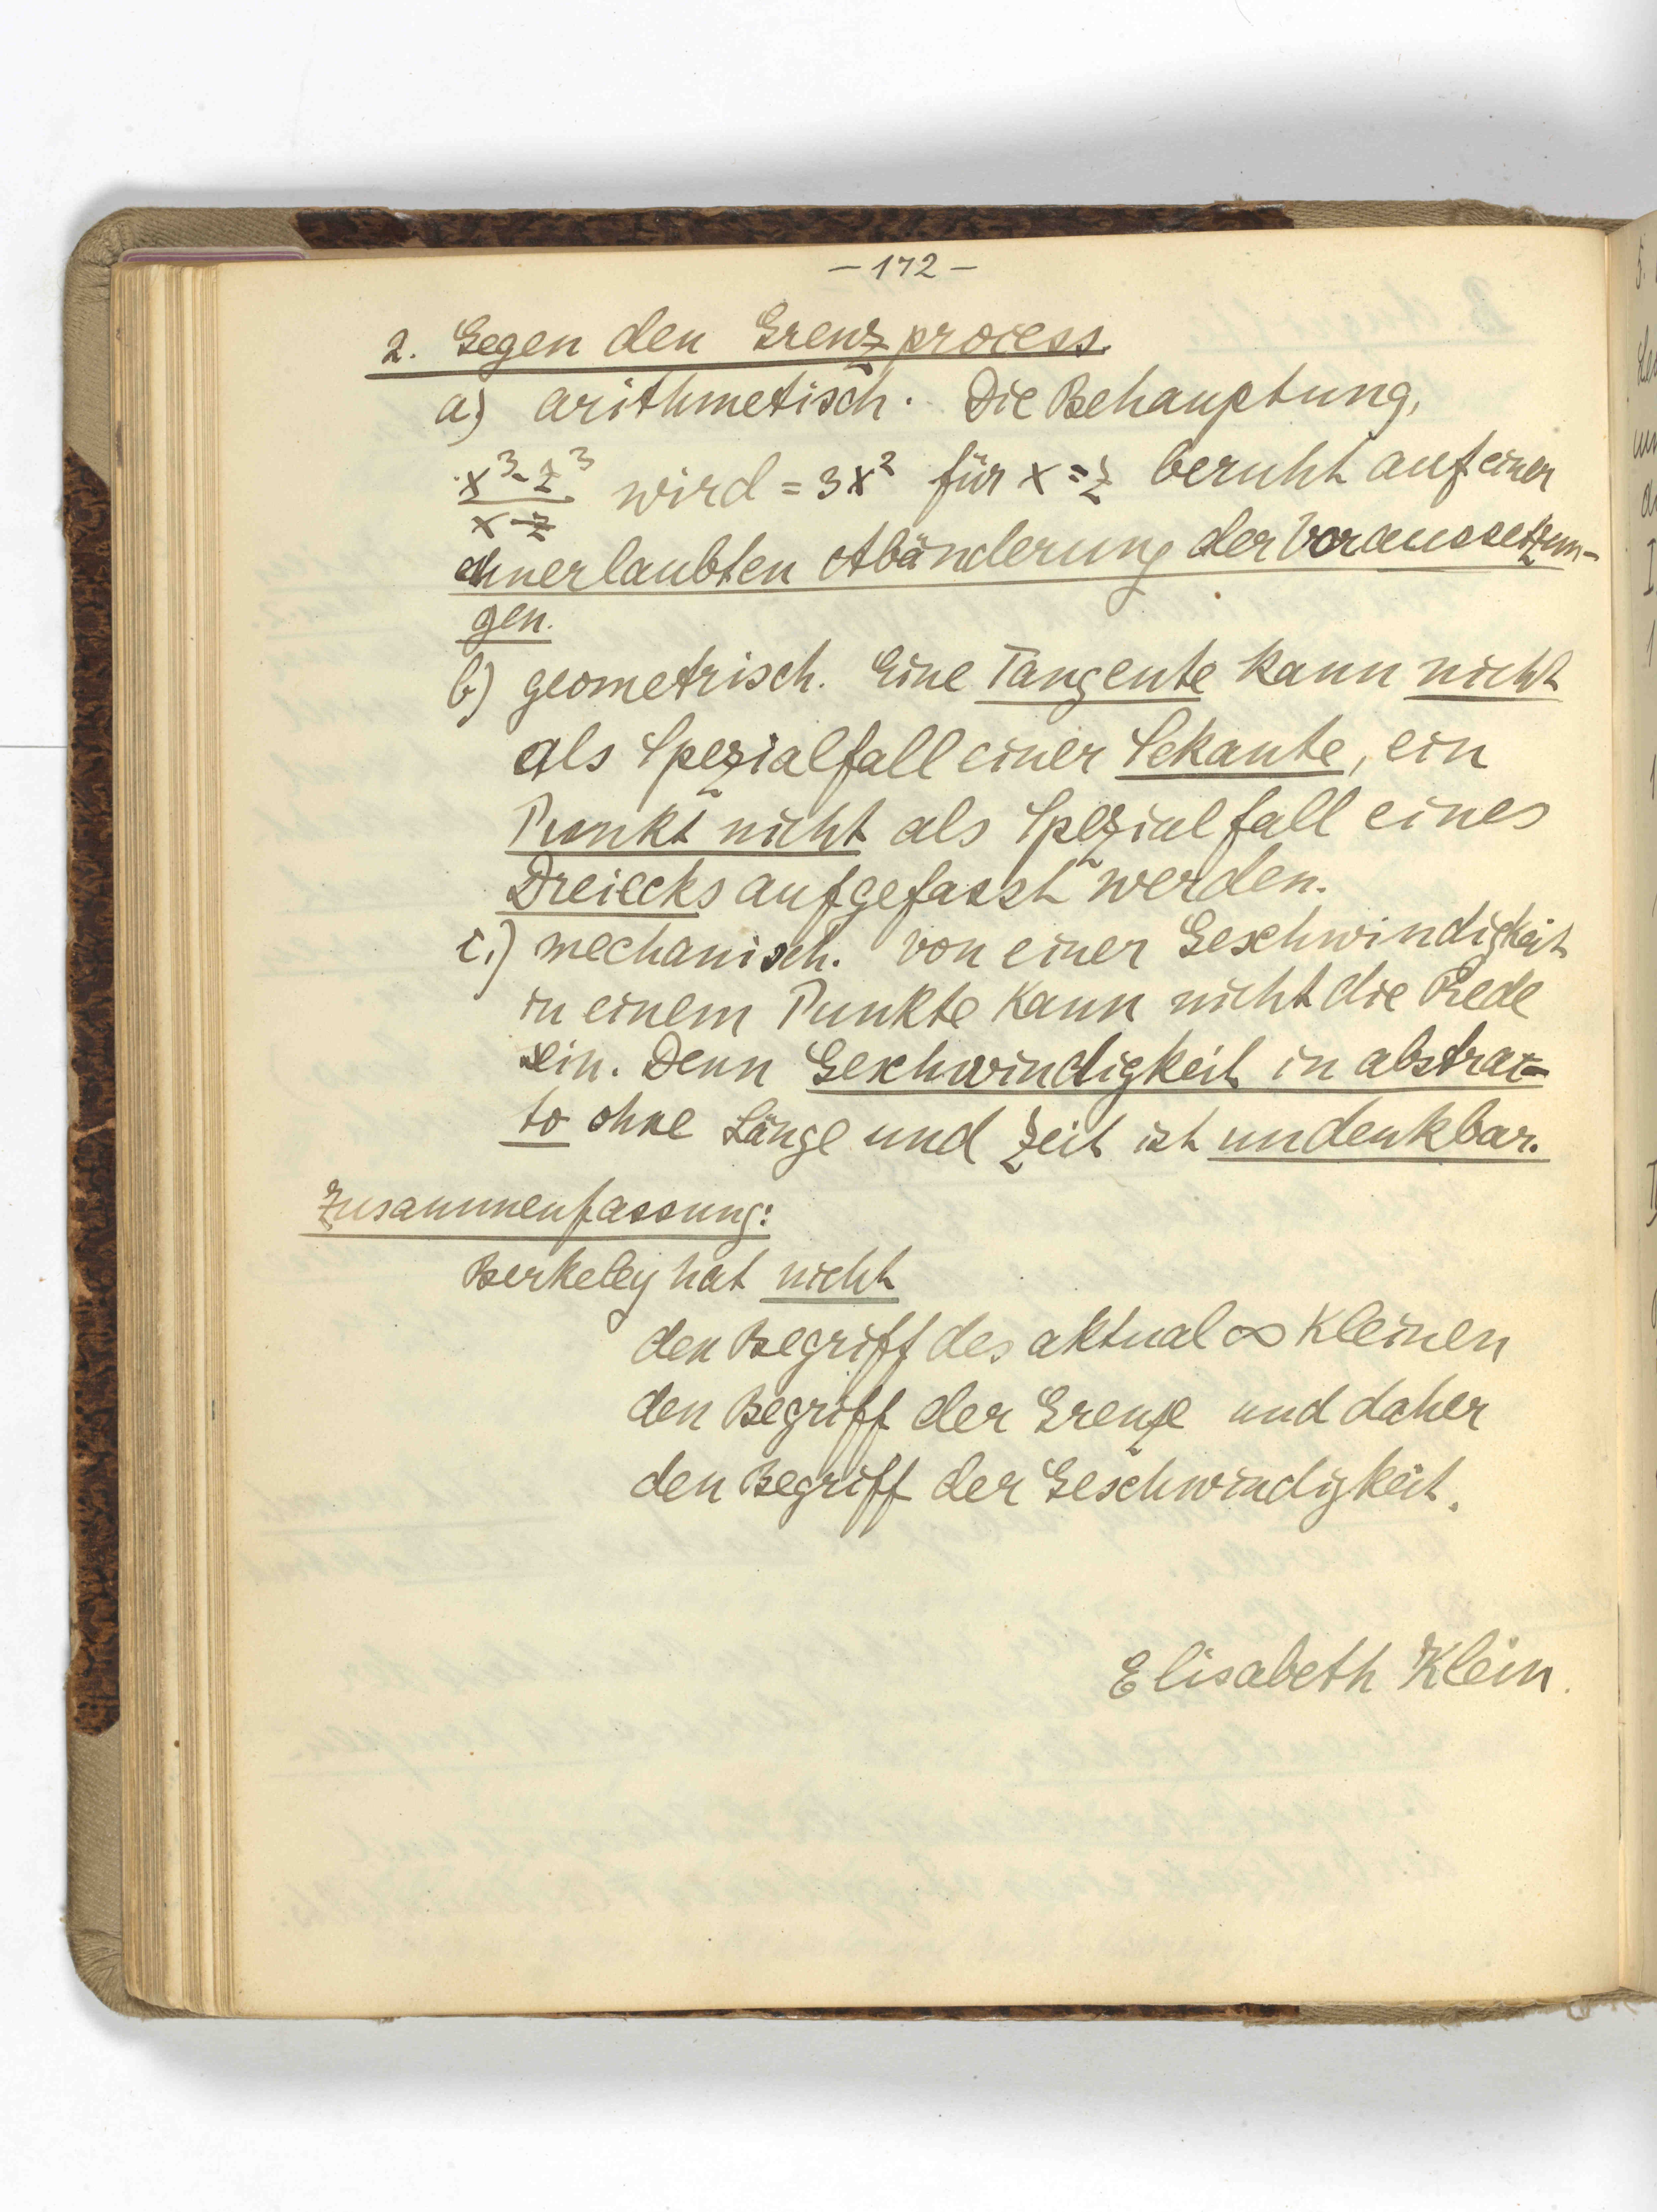 — 172 —
2. Gegen den Grenzprocess.
a) arithmetisch. Die Behauptung,
x³-z³/x-z wird = 3x² für x = z beruht auf einer
unerlaubten Abänderung der Voraussetzun-
gen.
b) geometrisch. Eine Tangente kann nicht
als Spezialfall einer Sekante, ein
Punkt nicht als Spezialfall eines
Dreiecks aufgefasst werden.
c.) mechanisch. von einer Geschwindigkeit
in einem Punkte kann nicht die Rede
sein. Denn Geschwindigkeit in abstrac-
to ohne Länge und Zeit ist undenkbar.
Zusammenfassung:
Berkeley hat nicht
den Begriff des aktual ∞ Kleinen
den Begriff der Grenze und daher
den Begriff der Geschwindigkeit.
Elisabeth Klein.